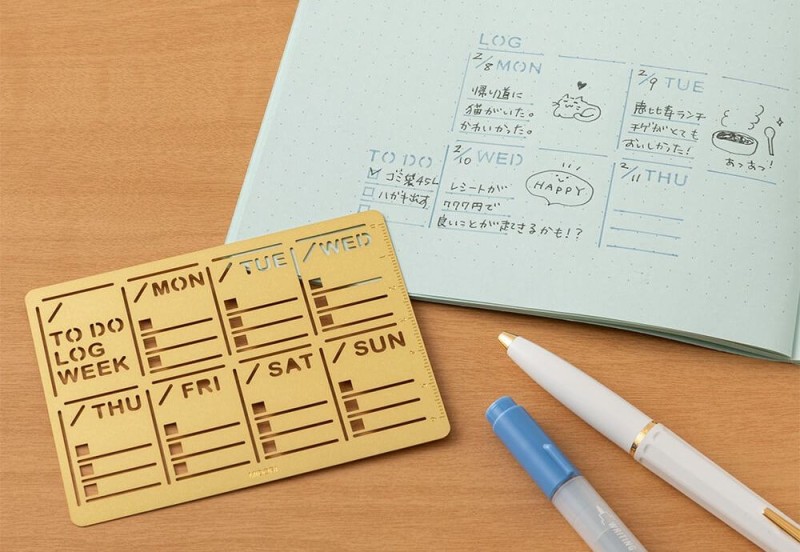 LOG
2/8 MON
帰り道に
猫がいた。
かわいかった。
2/9 TUE
恵比寿ランチ
チゲがとても
おいしかった!
あっあっ!
TO DO
ゴミ袋45L
ハガキ出す
2/10 WED
レシートが
777円で
良いことが起きるかも!?
HAPPY
2/11 THU
TO DO
LOG
WEEK
MON
TUE
WED
THU
FRI
SAT
SUN